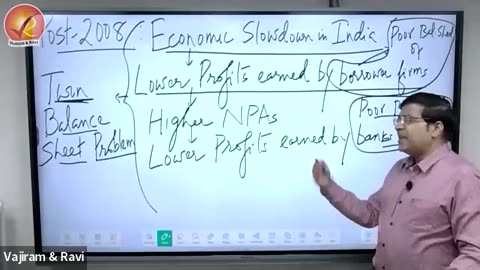 VAJIRAM & RAVI
Post-2008
Economic Slowdown in India
Poor Bal Sheet of
Lower Profits earned by borrower firms
Twin
Balance
Sheet Problem
Higher NPAs
Lower Profits earned by banks
Poor
Vajiram & Ravi